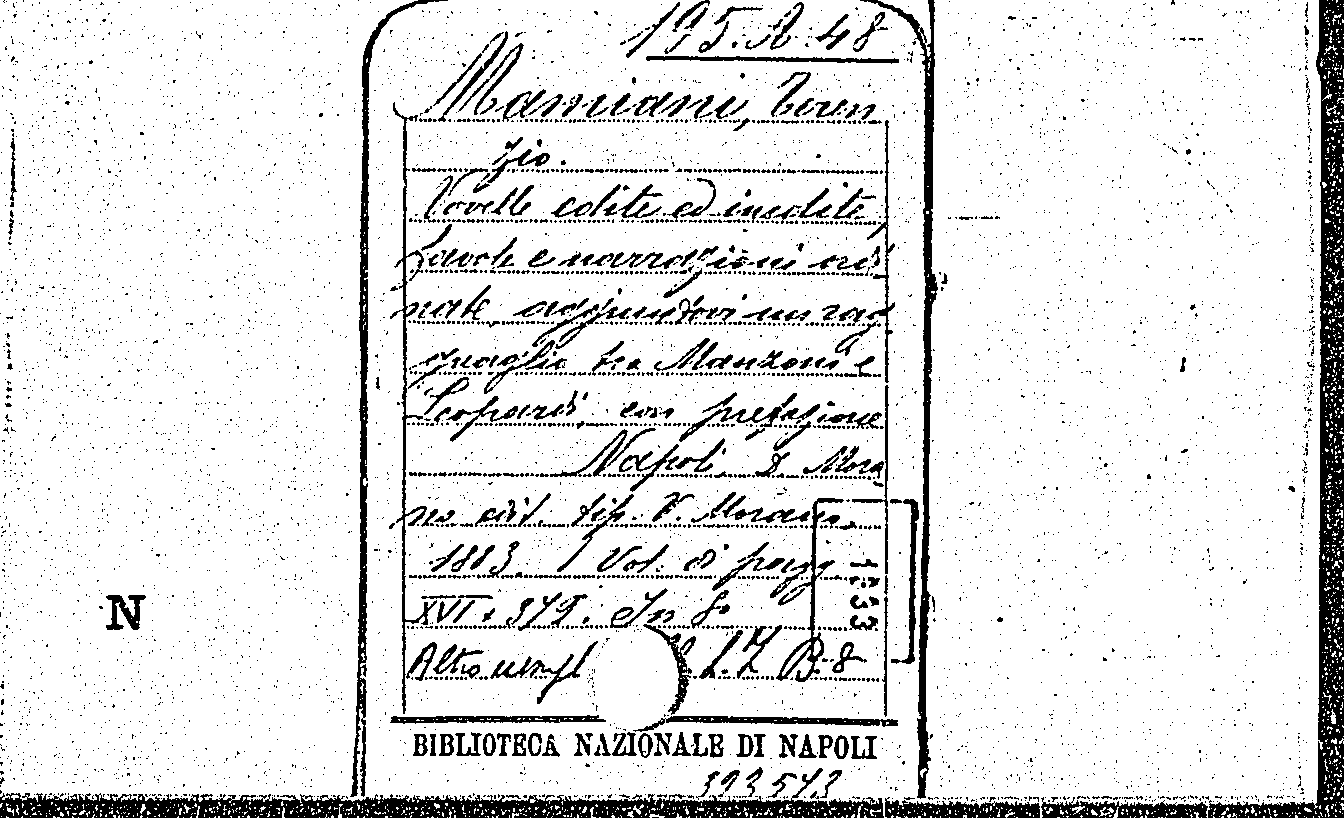 195.A.48
Mamiani, Teren
zio.
Novelle edite ed inedite,
favole e narrazioni ordi
nate, aggiuntovi un rag
guaglio tra Manzoni e
Leopardi, con prefazione
Napoli, D. Mora
no edit. tip. V. Morano.
1883. 1 Vol. di pagg
XVI + 379. In 8°
Altro esempl B. 8
1833
N
BIBLIOTECA NAZIONALE DI NAPOLI
393543